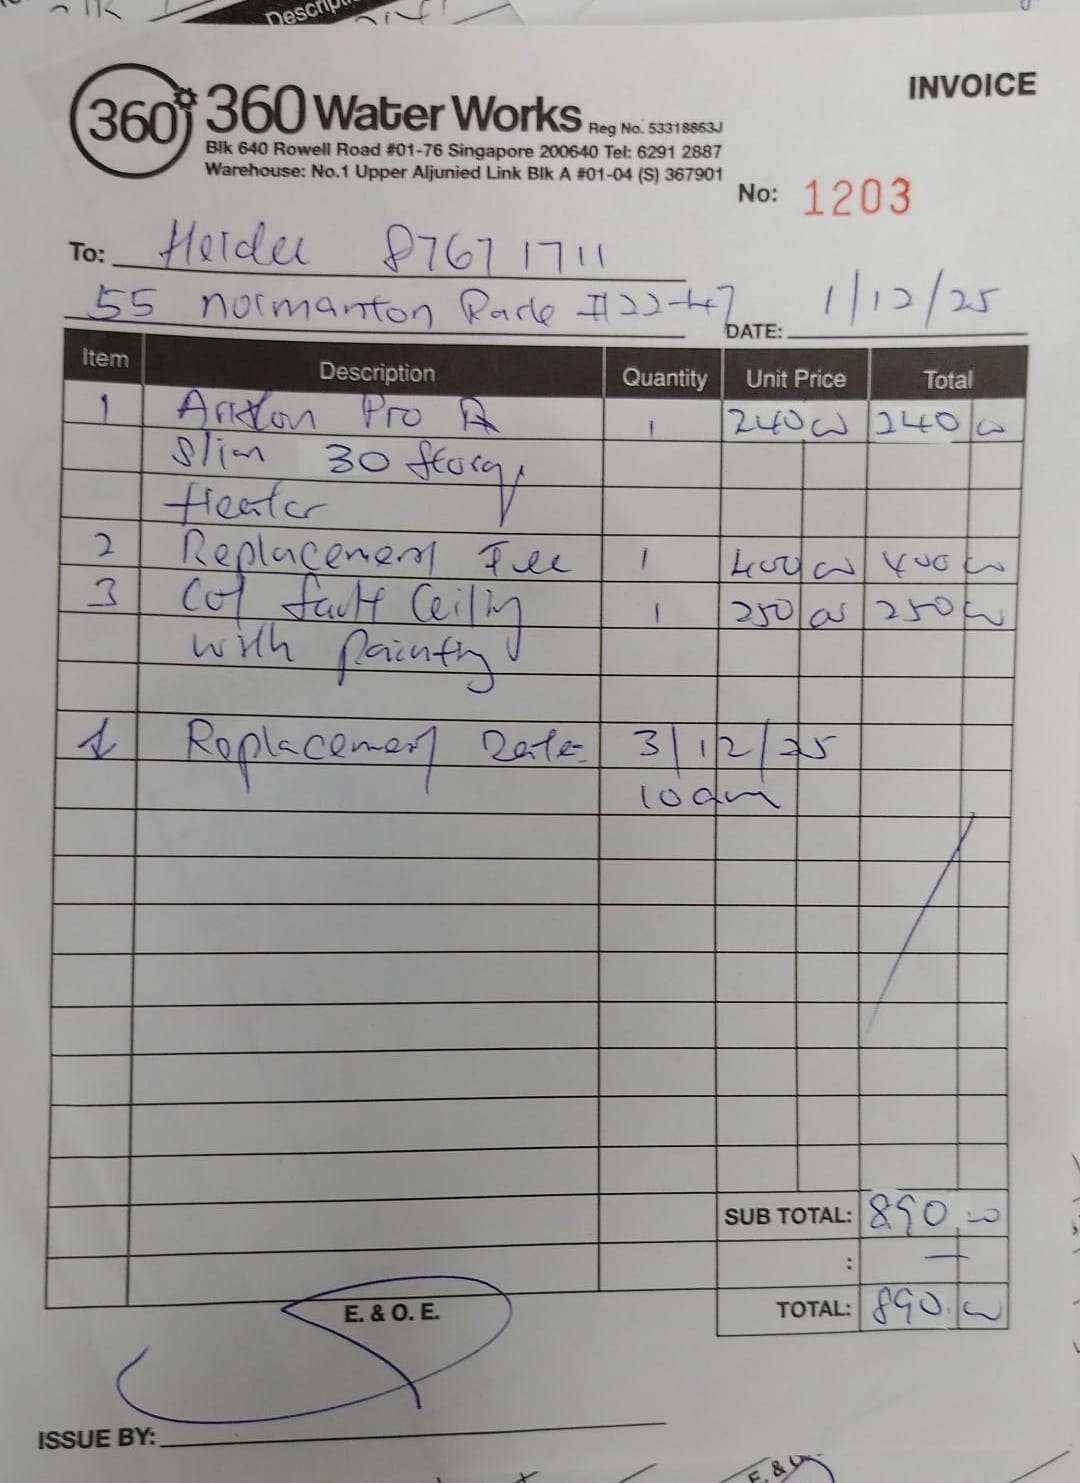 Description
INVOICE
360
360 Water Works Reg No. 53318863J
Blk 640 Rowell Road #01-76 Singapore 200640 Tel: 6291 2887
Warehouse: No.1 Upper Aljunied Link Blk A #01-04 (S) 367901
No: 1203
To: 8767 1711
55 Normanton Park #22-47
DATE: 1/12/25
Item Description Quantity Unit Price Total
1 Ariston Pro R 1 240 00 240 00
Slim 30 Storage
Heater
2 Replacement Fee 1 400 00 400 00
3 Cut Ceiling 1 250 00 250 00
with painting
Replacement Date: 3/12/25
10am
SUB TOTAL: 890.00
: —
TOTAL: 890.00
E. & O. E.
ISSUE BY:
E. & O